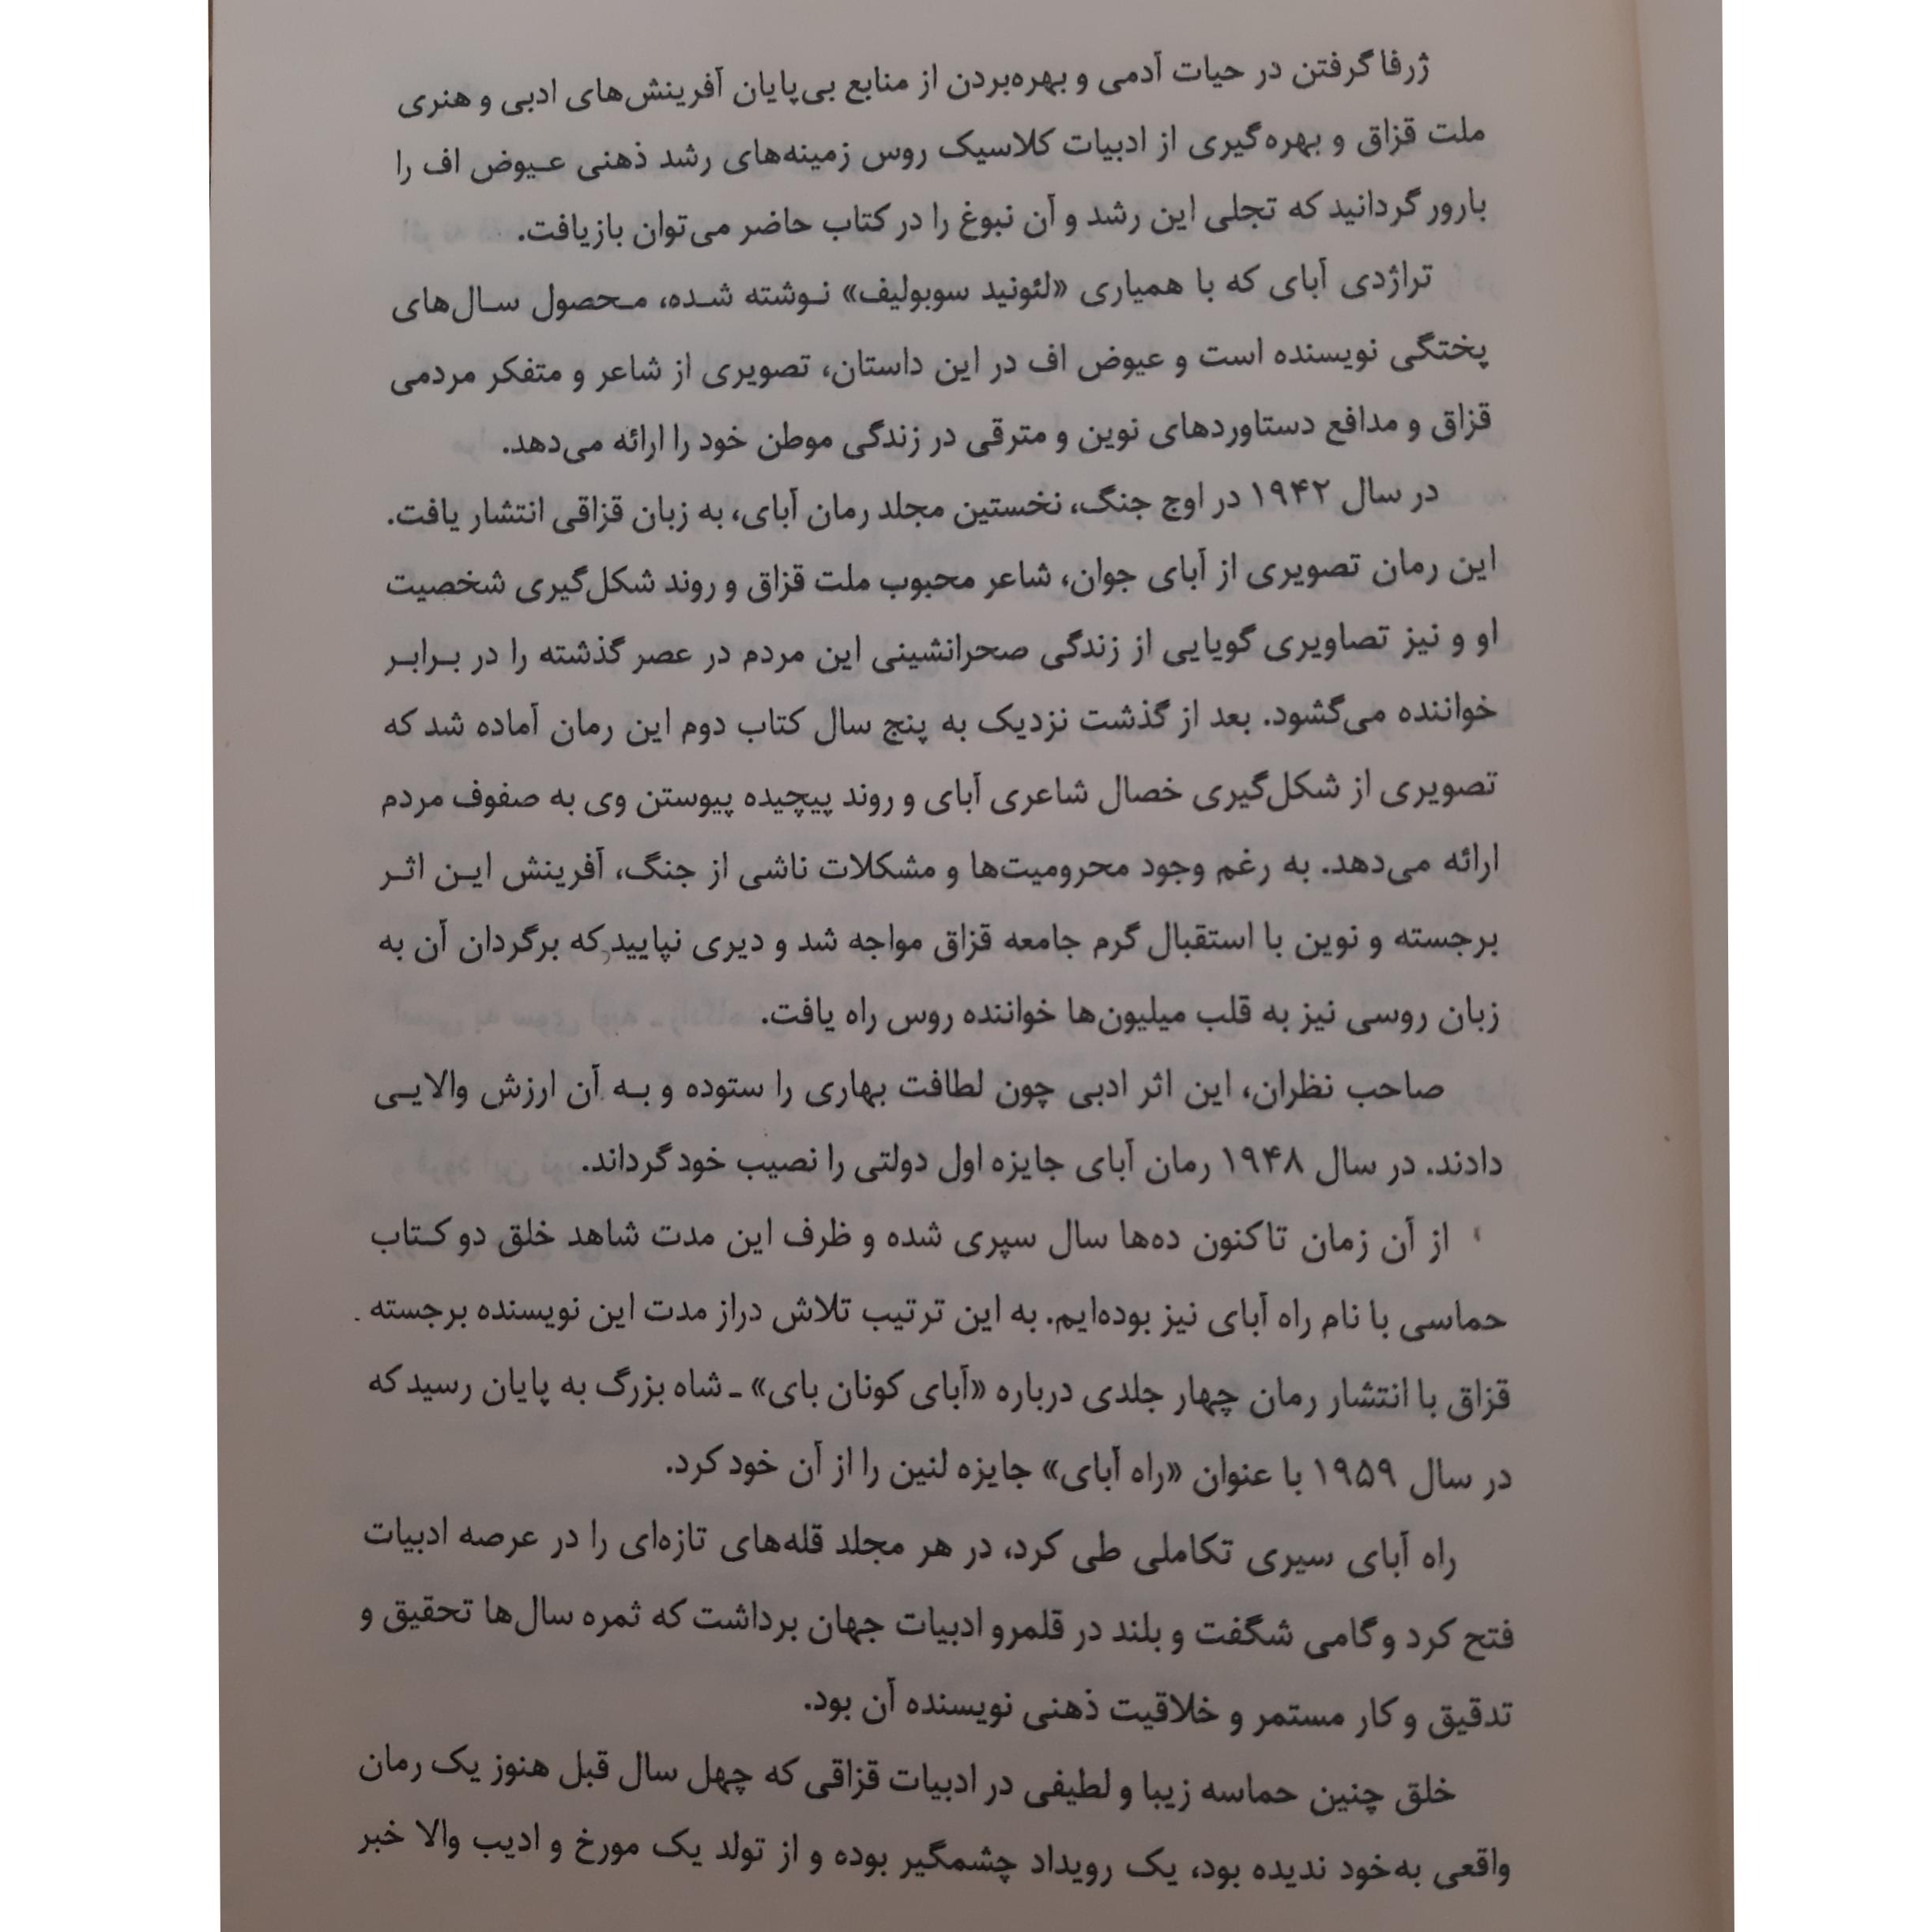 ژرفا گرفتن در حیات آدمی و بهره‌بردن از منابع بی‌پایان آفرینش‌های ادبی و هنری
ملت قزاق و بهره‌گیری از ادبیات کلاسیک روس زمینه‌های رشد ذهنی عیوض اف را
بارور گردانید که تجلی این رشد و آن نبوغ را در کتاب حاضر می‌توان بازیافت.
تراژدی آبای که با همیاری «لئونید سوبولیف» نوشته شده، محصول سال‌های
پختگی نویسنده است و عیوض اف در این داستان، تصویری از شاعر و متفکر مردمی
قزاق و مدافع دستاوردهای نوین و مترقی در زندگی موطن خود را ارائه می‌دهد.
در سال ۱۹۴۲ در اوج جنگ، نخستین مجلد رمان آبای، به زبان قزاقی انتشار یافت.
این رمان تصویری از آبای جوان، شاعر محبوب ملت قزاق و روند شکل‌گیری شخصیت
او و نیز تصاویری گویایی از زندگی صحرانشینی این مردم در عصر گذشته را در برابر
خواننده می‌گشود. بعد از گذشت نزدیک به پنج سال کتاب دوم این رمان آماده شد که
تصویری از شکل‌گیری خصال شاعری آبای و روند پیچیده پیوستن وی به صفوف مردم
ارائه می‌دهد. به رغم وجود محرومیت‌ها و مشکلات ناشی از جنگ، آفرینش این اثر
برجسته و نوین با استقبال گرم جامعه قزاق مواجه شد و دیری نپایید که برگردان آن به
زبان روسی نیز به قلب میلیون‌ها خواننده روس راه یافت.
صاحب نظران، این اثر ادبی چون لطافت بهاری را ستوده و به آن ارزش والایی
دادند. در سال ۱۹۴۸ رمان آبای جایزه اول دولتی را نصیب خود گرداند.
از آن زمان تاکنون ده‌ها سال سپری شده و ظرف این مدت شاهد خلق دو کتاب
حماسی با نام راه آبای نیز بوده‌ایم. به این ترتیب تلاش دراز مدت این نویسنده برجسته
قزاق با انتشار رمان چهار جلدی درباره «آبای کونان بای» ـ شاه بزرگ به پایان رسید که
در سال ۱۹۵۹ با عنوان «راه آبای» جایزه لنین را از آن خود کرد.
راه آبای سیری تکاملی طی کرد، در هر مجلد قله‌های تازه‌ای را در عرصه ادبیات
فتح کرد و گامی شگفت و بلند در قلمرو ادبیات جهان برداشت که ثمره سال‌ها تحقیق و
تدقیق و کار مستمر و خلاقیت ذهنی نویسنده آن بود.
خلق چنین حماسه زیبا و لطیفی در ادبیات قزاقی که چهل سال قبل هنوز یک رمان
واقعی به‌خود ندیده بود، یک رویداد چشمگیر بوده و از تولد یک مورخ و ادیب والا خبر